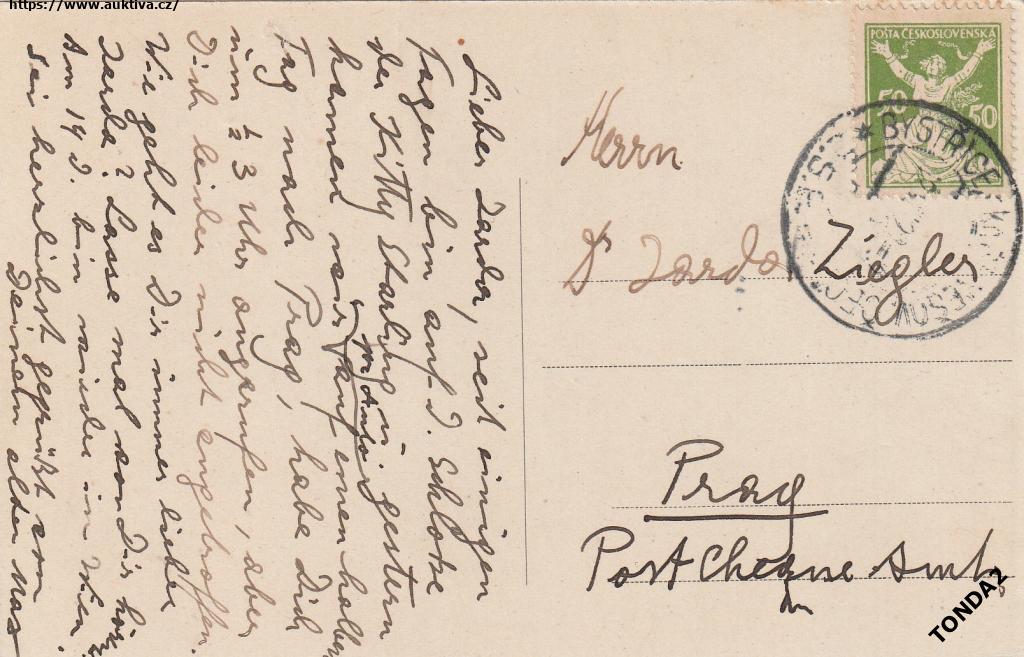 https://www.auktiva.cz/
Lieber Jarda, seit einigen
Tagen bin auf d. Schloße
der Kitty Starling u gestern
kamen wir per Auto auf einen halben
Tag nach Prag, habe Dich
um ½ 3 Uhr angerufen, aber
Dich leider nicht angetroffen.
Wie geht es Dir immer lieber
Jarda? Lasse mal von Dir hören
Am 14 d. bin wieder in Wien.
Sei herzlichst gegrüßt von
Deinem alten
POŠTA ČESKOSLOVENSKÁ
50 50
* BYSTŘICE
Herrn
Dr Jarda Ziegler
Prag
Post Cheque Amt
TONDA2